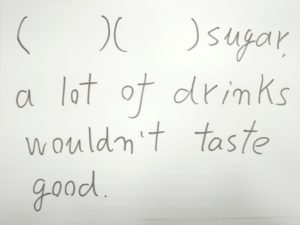 (      )(      ) sugar,
a lot of drinks
wouldn't taste
good.